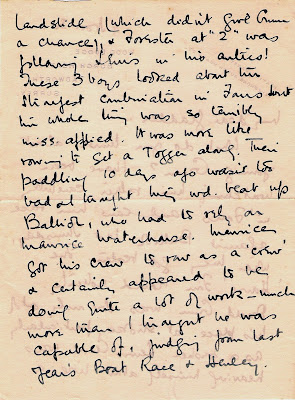 Landslide, (which didn't give
a chance), & Forester at "2" was
following in his antics!
These 3 boys looked about the
strangest combination in Fours but
the whole thing was so terribly
miss.applied. It was more like
rowing to get a Togger along. Their
paddling 10 days ago wasn't too
bad & I thought they wd. beat up
Balliol, who had to rely on
Maurice Waterhouse. Maurice
got his crew to row as a 'crew'
& certainly appeared to be
doing quite a lot of work – much
more than I thought he was
capable of, judging from last
year's Boat Race & Henley.